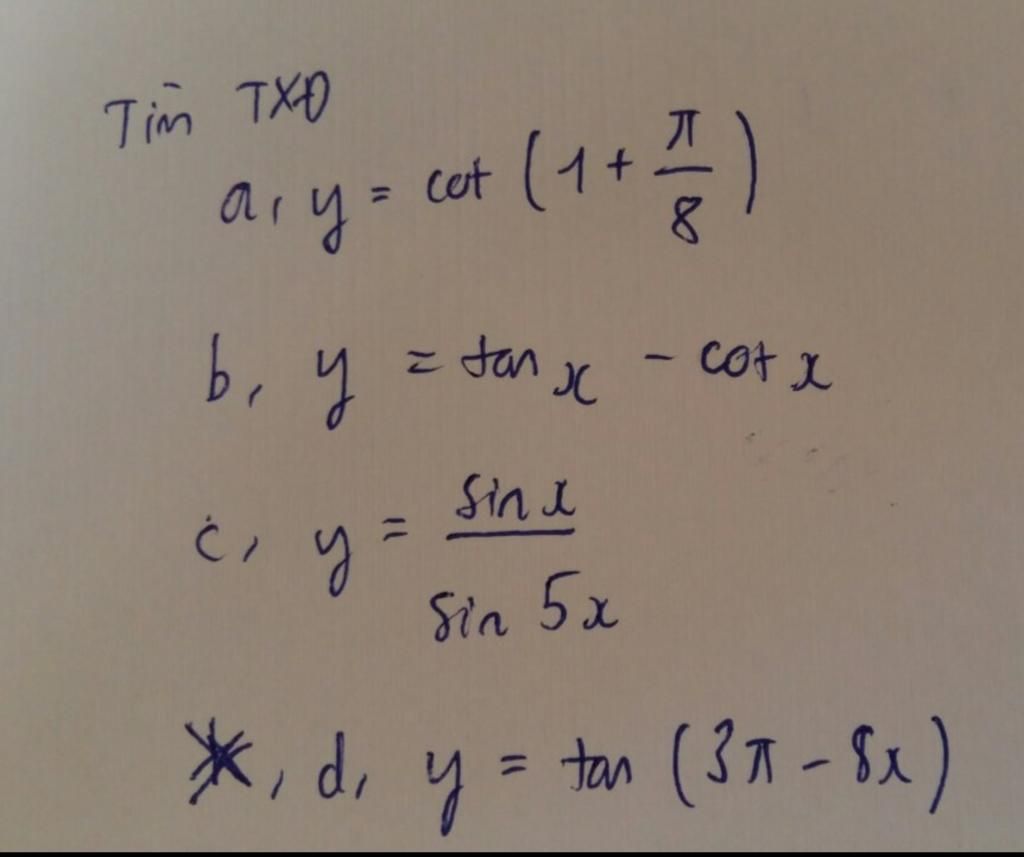 Tìm TXĐ
a, y = cot (1 + π/8)
b, y = tan x - cot x
c, y = sin x / sin 5x
d, y = tan (3π - 8x)